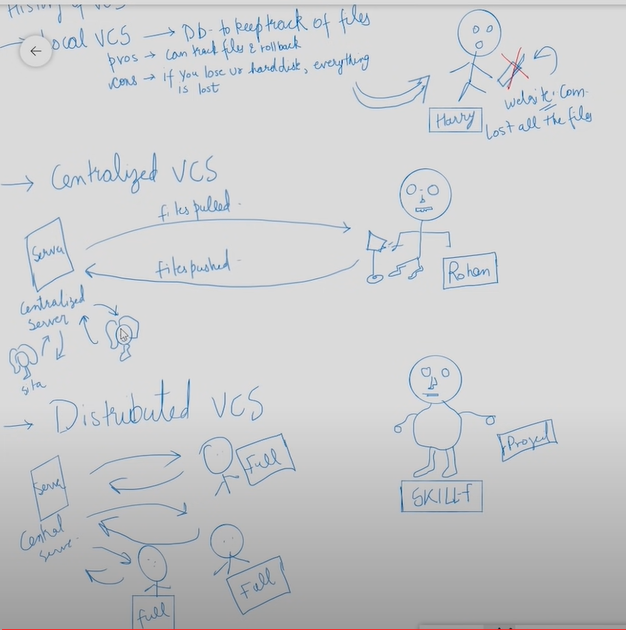 History of VCS
→ Local VCS → Db- to keep track of files
pros → can track files & rollback
cons → if you lose ur harddisk, everything
is lost
Harry
website.com
Lost all the files
→ Centralized VCS
files pulled
Server
files pushed
Rohan
Centralized
Server
sita
→ Distributed VCS
Server
Full
Project
SKILLF
Central
Full
Full